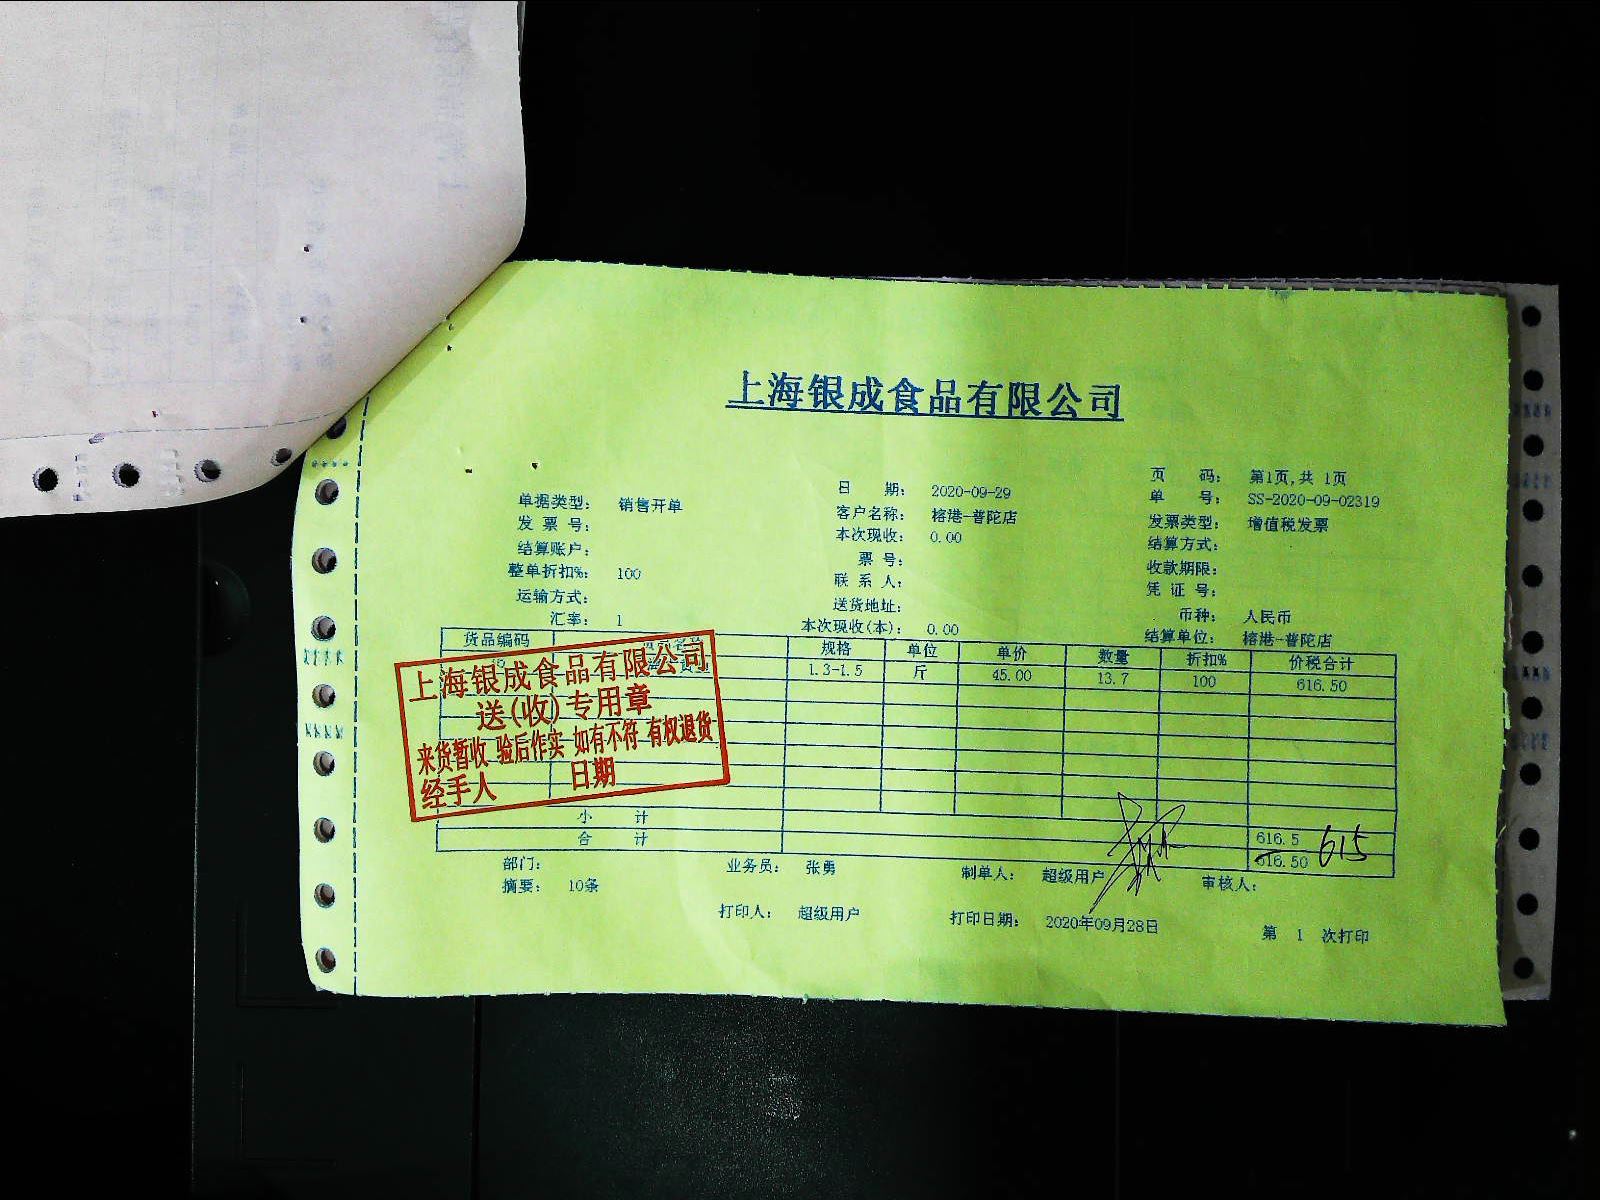 上海银成食品有限公司
页 码: 第1页,共 1页
单据类型: 销售开单 日 期: 2020-09-29 单 号: SS-2020-09-02319
发 票 号: 客户名称: 榕港-普陀店 发票类型: 增值税发票
结算账户: 本次现收: 0.00 结算方式:
整单折扣%: 100 票 号: 收款期限:
运输方式: 联 系 人: 凭 证 号:
汇率: 1 送货地址: 币种: 人民币
本次现收(本): 0.00 结算单位: 榕港-普陀店
货品编码 规格 单位 单价 数量 折扣% 价税合计
1.3-1.5 斤 45.00 13.7 100 616.50
上海银成食品有限公司
送(收)专用章
来货暂收 验后作实 如有不符 有权退货
经手人 日期
小 计 616.5
合 计 616.50 615
部门: 业务员: 张勇 制单人: 超级用户 审核人:
摘要: 10条
打印人: 超级用户 打印日期: 2020年09月28日 第 1 次打印